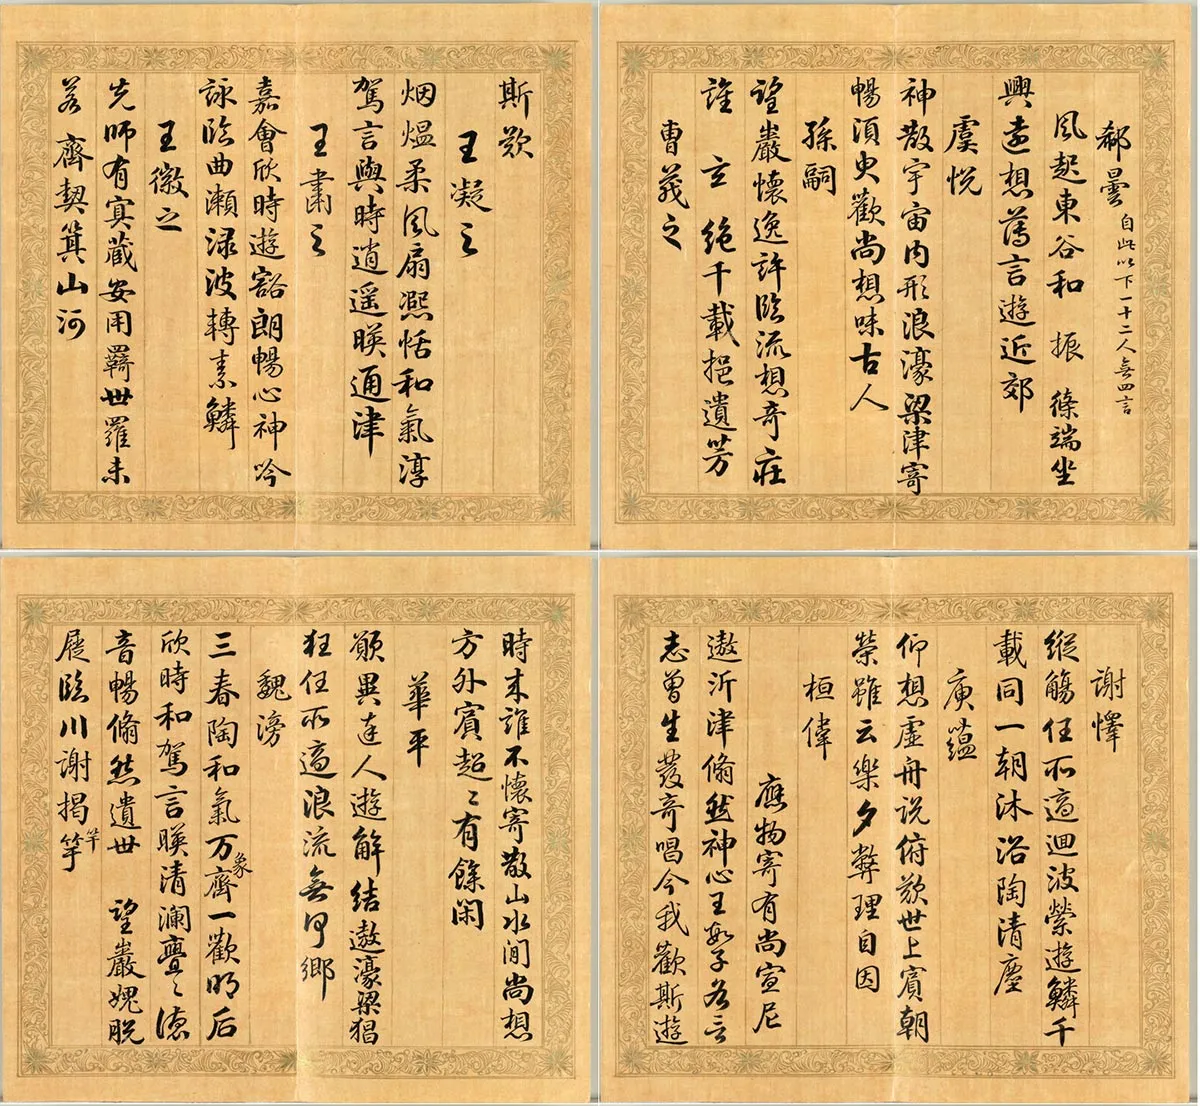 郗曇 自此以下一十二人無四言
風起東谷和 振 條端坐
興遠想薄言遊近郊
虞悅
神散宇宙內形浪濠梁津寄
暢須臾歡尚想味古人
孫嗣
望巖懷逸許臨流想奇莊
誰 云 絕千載挹遺芳
曹茂之
斯歎
王凝之
烟熅柔風扇熙恬和氣淳
駕言與時逍遥暎通津
王肅之
嘉會欣時遊豁朗暢心神吟
詠臨曲瀨淥波轉素鱗
王徽之
先師有冥藏安用羈世羅未
若 齊契箕山河
謝懌
縱觴任所適迴波縈遊鱗千
載同一朝沐浴陶清塵
庾蘊
仰想虛舟說俯歎世上賓朝
榮雖云樂夕弊理自因
桓偉
應物寄有尚宣尼
遨沂津翛然神心王數子各言
志曾生發奇唱今我歡斯遊
時來誰不懷寄散山水間尚想
方外賓超〻有餘閑
華平
願異達人遊解結遨濠梁狷
狂任所適浪流無何鄉
魏滂
三春陶和氣万象齊一歡明后
欣時和駕言暎清瀾亹〻德
音暢翛然遺世 望巖愧脫
屣臨川謝揭竿竿